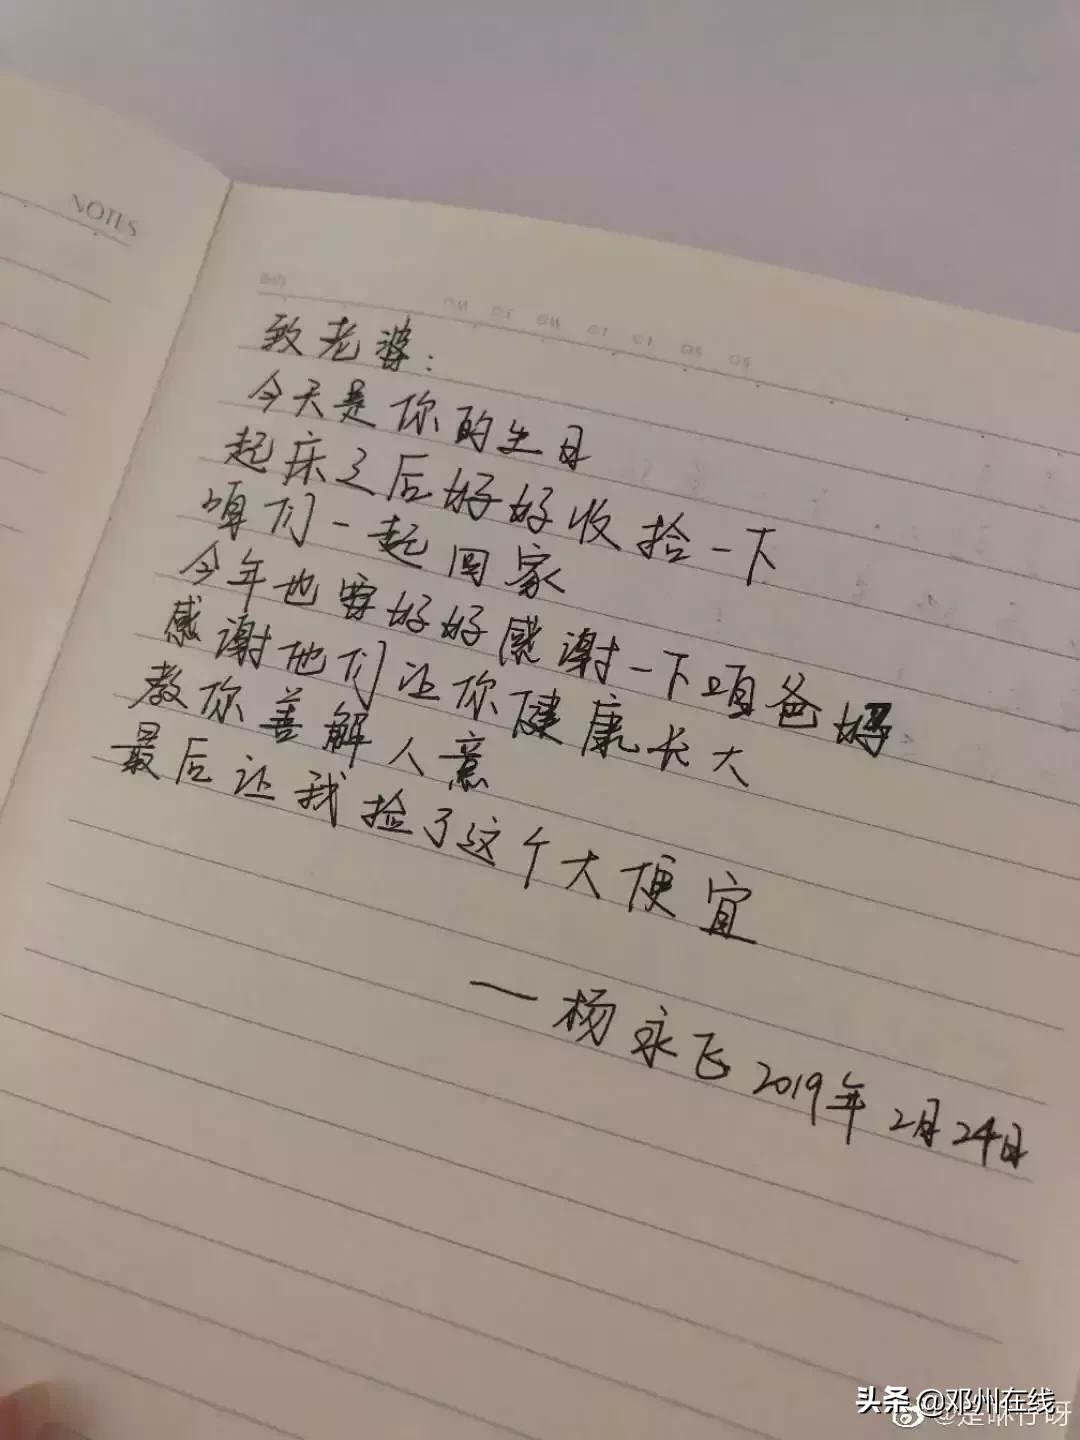 NOTES
致老婆：
今天是你的生日
起床之后好好收拾一下
咱们一起回家
今年也要好好感谢一下咱爸妈
感谢他们让你健康长大
教你善解人意
最后让我捡了这个大便宜
—杨永飞 2019年2月24日
头条 @邓州在线